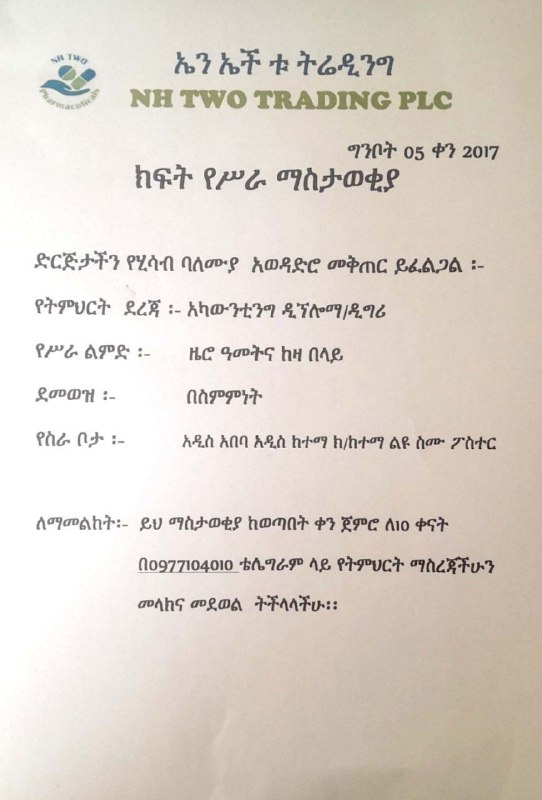 NH TWO
Pharmaceuticals
ኤን ኤች ቱ ትሬዲንግ
NH TWO TRADING PLC
ግንቦት 05 ቀን 2017
ክፍት የሥራ ማስታወቂያ
ድርጅታችን የሂሳብ ባለሙያ አወዳድሮ መቅጠር ይፈልጋል ፡-
የትምህርት ደረጃ ፡- አካውንቲንግ ዲፕሎማ/ዲግሪ
የሥራ ልምድ ፡- ዜሮ ዓመትና ከዛ በላይ
ደመወዝ ፡- በስምምነት
የስራ ቦታ ፡- አዲስ አበባ አዲስ ከተማ ክ/ከተማ ልዩ ስሙ ፖስተር
ለማመልከት፡- ይህ ማስታወቂያ ከወጣበት ቀን ጀምሮ ለ10 ቀናት
በ0977104010 ቴሌግራም ላይ የትምህርት ማስረጃችሁን
መላክና መደወል ትችላላችሁ፡፡